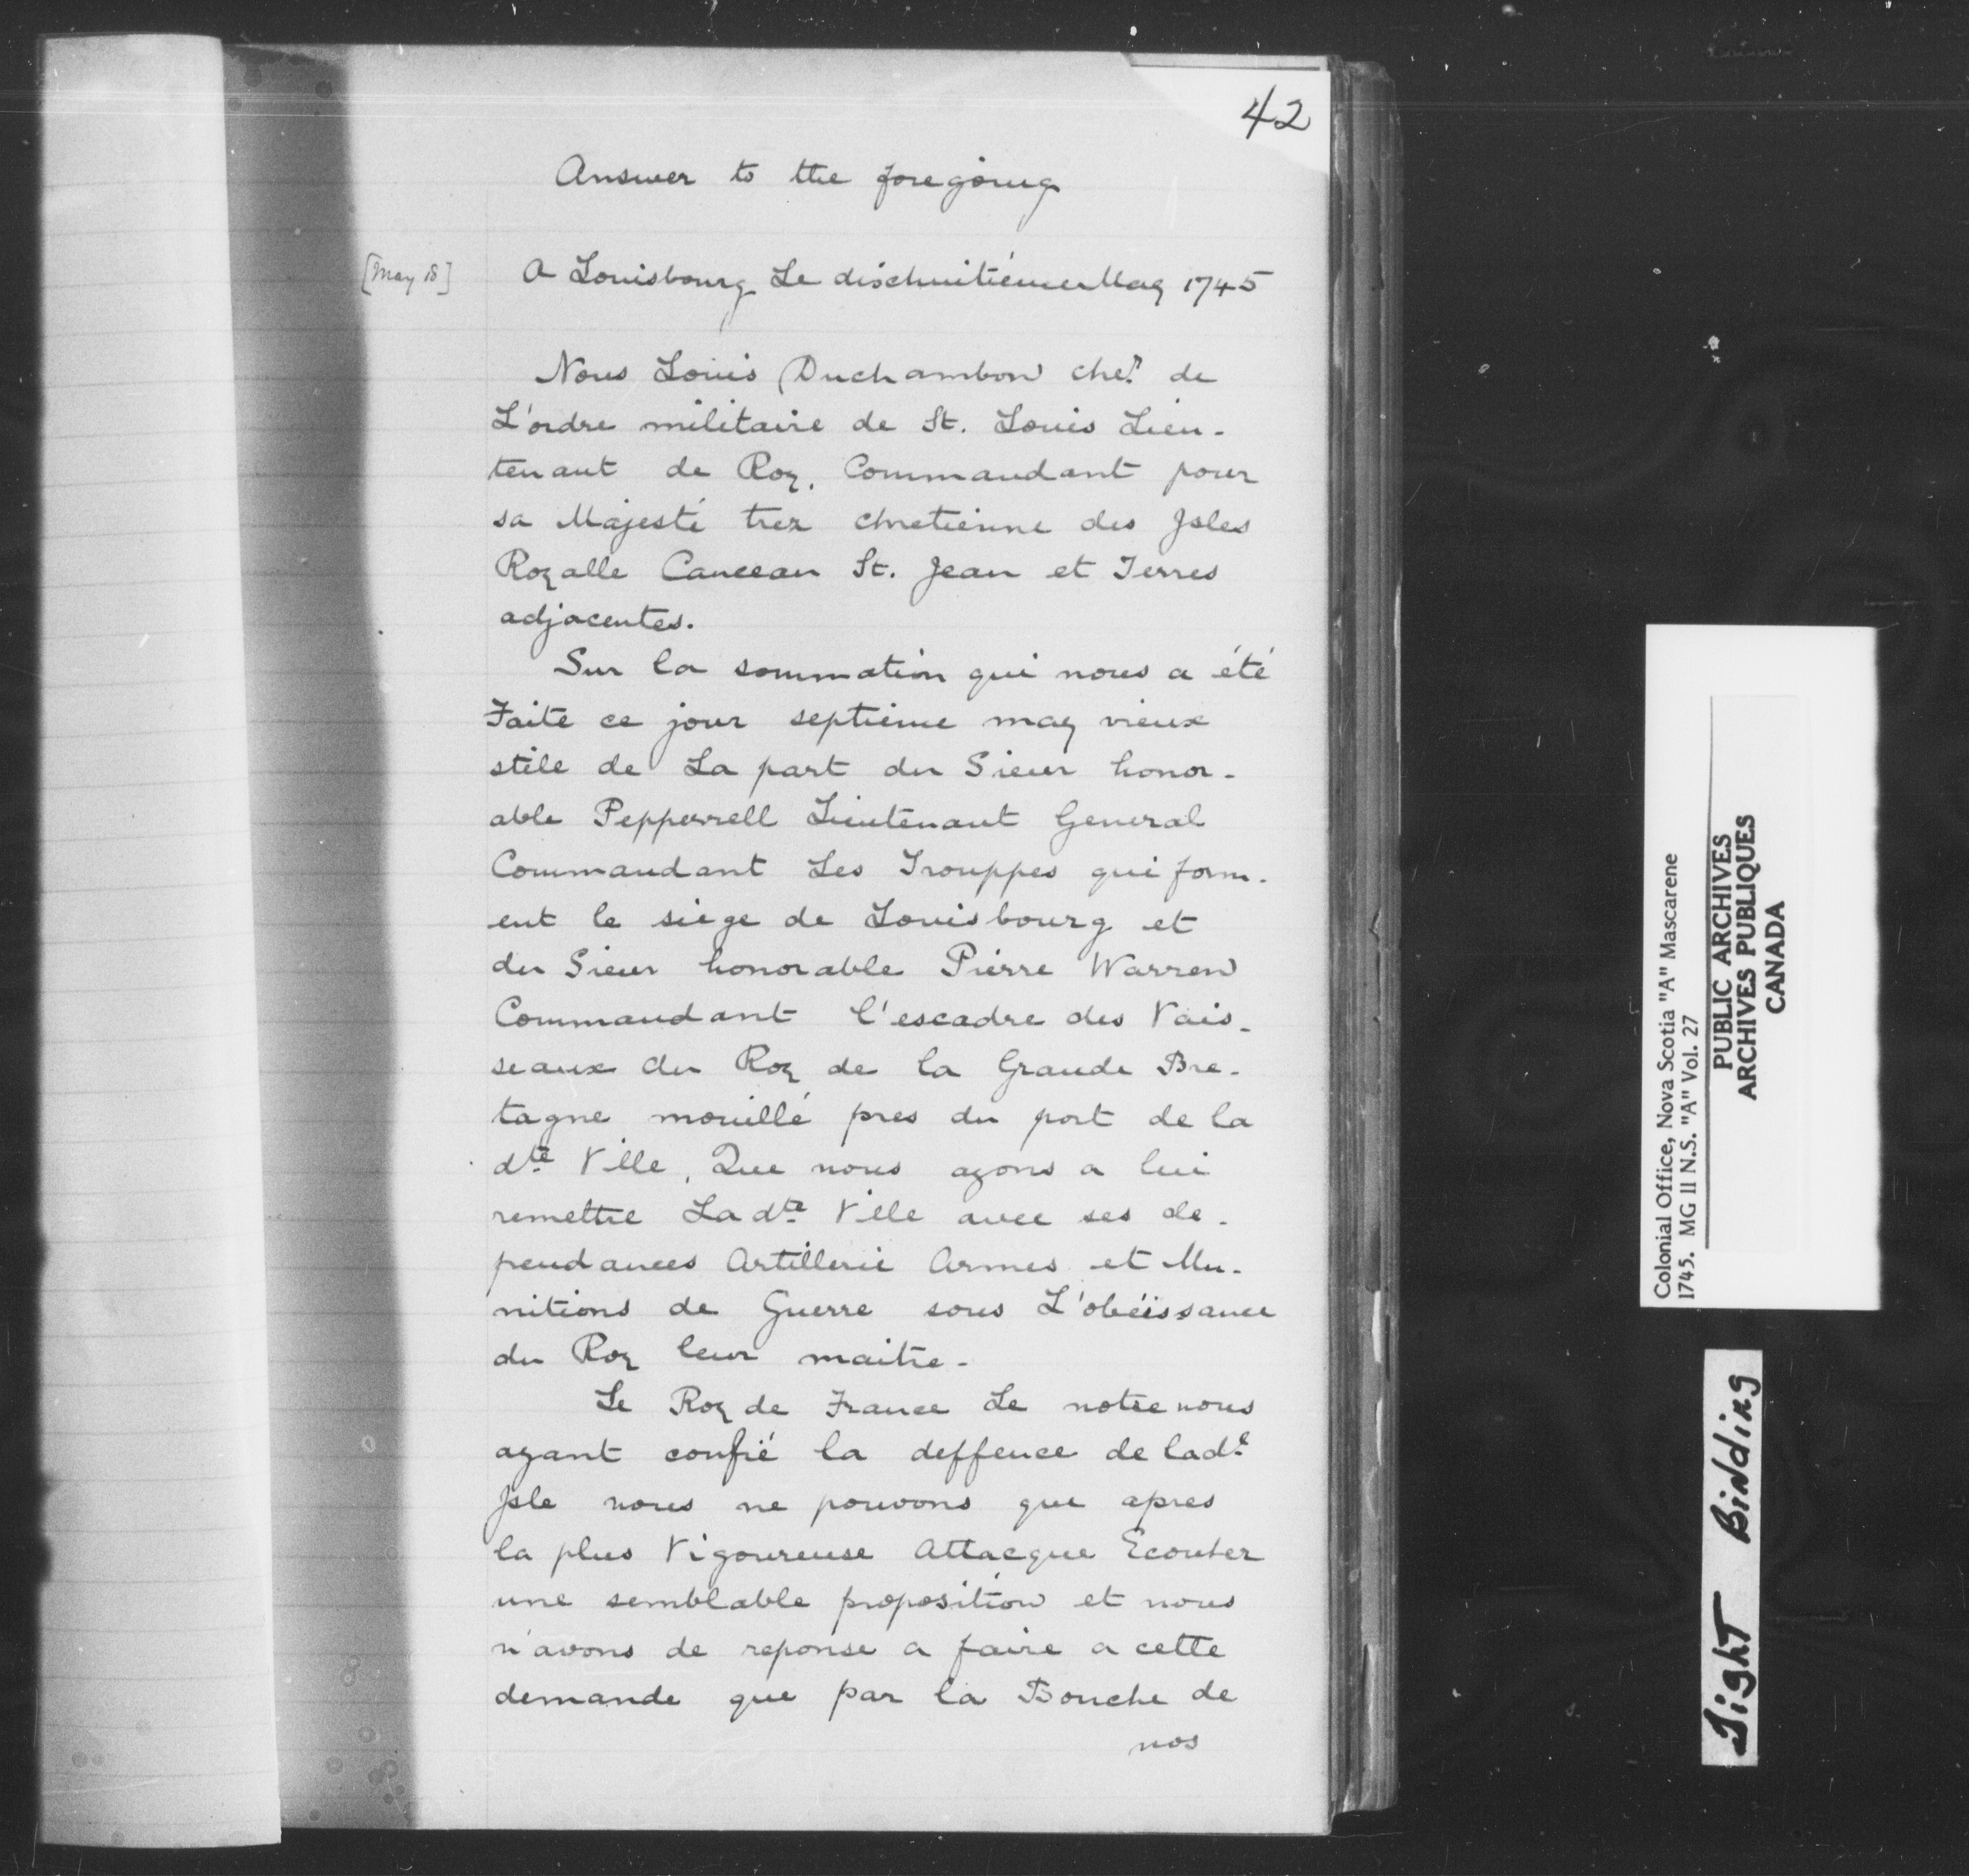 42
Answer to the foregoing
[May 18]
A Louisbourg Le dischuitiéme May 1745
Nous Louis Duchambon che.r de
L'ordre militaire de St. Louis Lieu-
tenant de Roy, Commandant pour
sa Majesté trez chretienne des Isles
Royalle Canceau St. Jean et Terres
adjacentes.
Sur la sommation qui nous a été
Faite ce jour septieme may vieux
stile de La part du Sieur honor-
able Pepperrell Lieutenant General
Commandant Les Trouppes qui form-
ent le siege de Louisbourg et
du Sieur honorable Pierre Warren
Commandant l'escadre des Vais-
seaux du Roy de la Grande Bre-
tagne mouillé pres du port de la
dte Ville, Que nous ayons a lui
remettre La dte Ville avec ses de-
pendances Artillerie Armes et Mu-
nitions de Guerre sous L'obéissance
du Roy leur maitre-
Le Roy de France Le notre nous
ayant confié la deffence de lad.e
Isle nous ne pouvons que apres
la plus Vigoureuse Attacque Ecouter
une semblable proposition et nous
n'avons de reponse a faire a cette
demande que par la Bouche de
nos
Colonial Office, Nova Scotia "A" Mascarene
1745. MG 11 N.S. "A" Vol. 27
PUBLIC ARCHIVES
ARCHIVES PUBLIQUES
CANADA
Tight Bidding